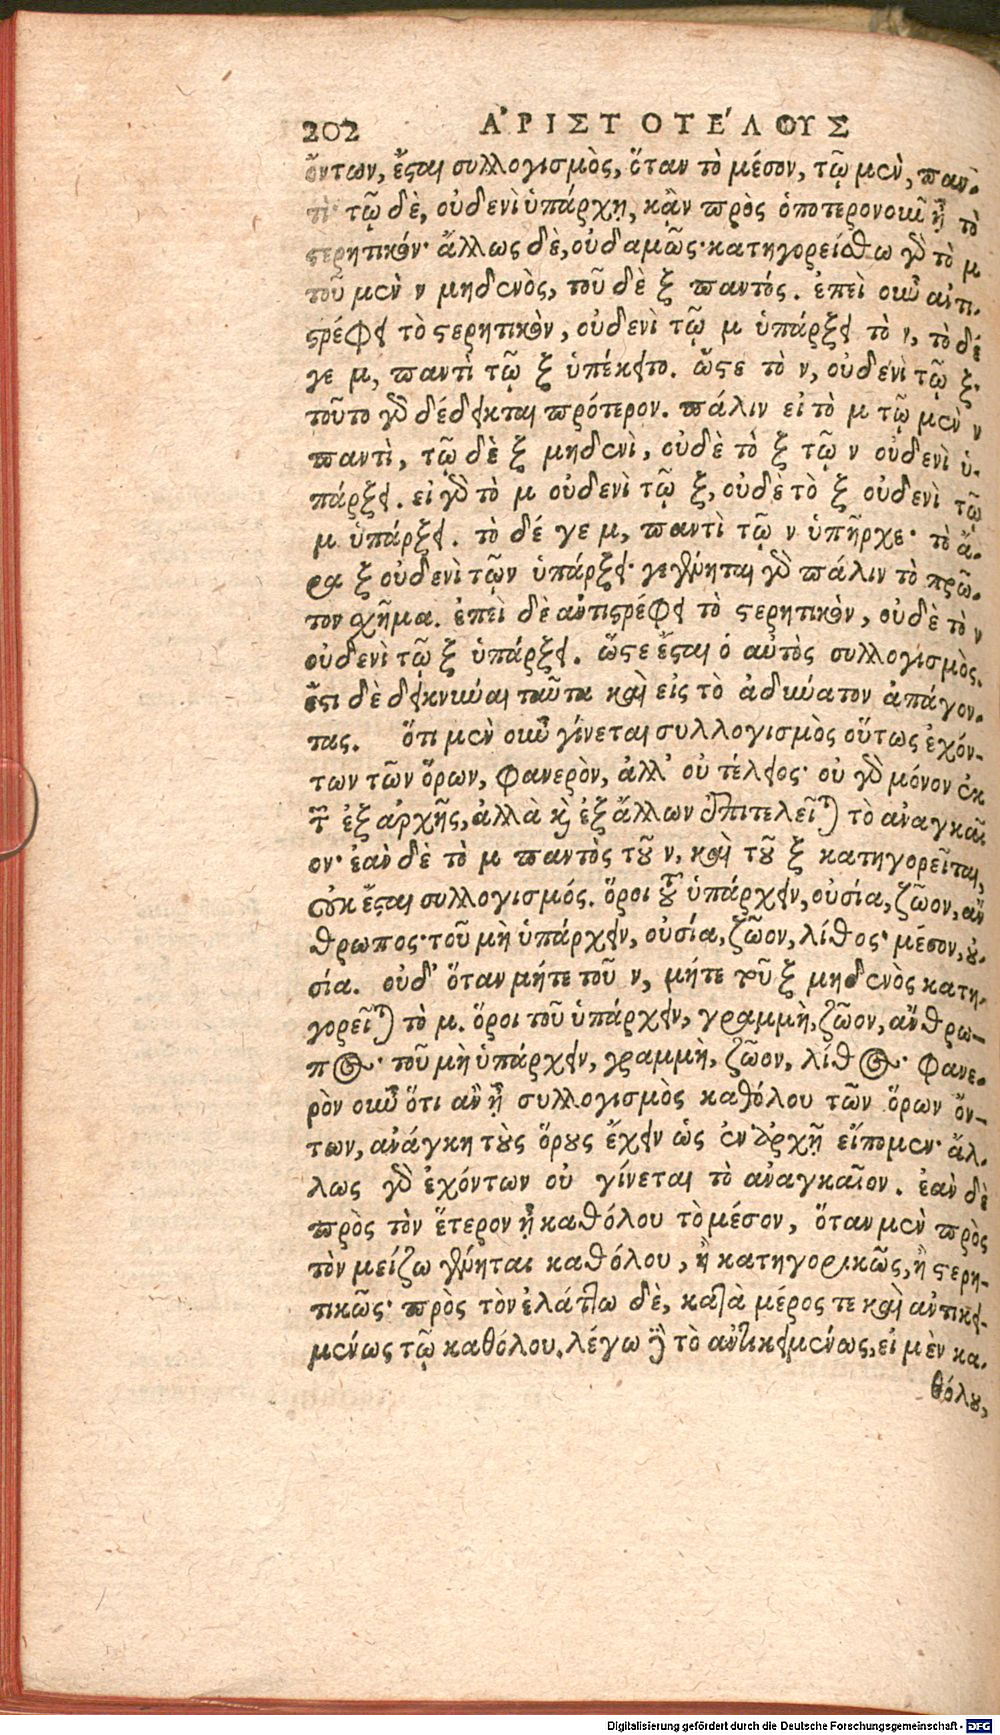 202 ἈΡΙΣΤΟΤΕ´ΛΟΥΣ
ὄντων, ἔσται συλλογισμὸς, ὅταν τὸ μέσον, τῷ μὲν, παν-
τὶ· τῷ δὲ, οὐδενὶ ὑπάρχῃ, κἂν πρὸς ὁποτερονοῦν ᾖ τὸ
στερητικόν· ἄλλως δὲ, οὐδαμῶς· κατηγορείσθω γὰρ τὸ μ
τοῦ μὲν ν μηδενὸς, τοῦ δὲ ξ παντός. ἐπεὶ οὖν ἀντι-
στρέφει τὸ στερητικὸν, οὐδενὶ τῷ μ ὑπάρξει τὸ ν, τὸ δέ
γε μ, παντὶ τῷ ξ ὑπέκειτο. ὥστε τὸ ν, οὐδενὶ τῷ ξ·
τοῦτο γὰρ δέδεικται πρότερον. πάλιν εἰ τὸ μ τῷ μὲν ν
παντὶ, τῷ δὲ ξ μηδενὶ, οὐδὲ τὸ ξ τῷ ν οὐδενὶ ὑ-
πάρξει. εἰ γὰρ τὸ μ οὐδενὶ τῷ ξ, οὐδὲ τὸ ξ οὐδενὶ τῷ
μ ὑπάρξει. τὸ δέ γε μ, παντὶ τῷ ν ὑπῆρχε· τὸ ἄ-
ρα ξ οὐδενὶ τῷν ὑπάρξει· γεγένηται γὰρ πάλιν τὸ πρῶ-
τον σχῆμα. ἐπεὶ δὲ ἀντιστρέφει τὸ στερητικὸν, οὐδὲ τὸ ν
οὐδενὶ τῷ ξ ὑπάρξει. ὥστε ἔσται ὁ αὐτὸς συλλογισμὸς.
ἔστι δὲ δεικνύναι ταῦτα καὶ εἰς τὸ ἀδύνατον ἀπάγον-
τας. ὅτι μὲν οὖν γίνεται συλλογισμὸς οὕτως ἐχόν-
των τῶν ὅρων, φανερὸν, ἀλλ' οὐ τέλειος· οὐ γὰρ μόνον ἐκ
τῶν ἐξ ἀρχῆς, ἀλλὰ καὶ ἐξ ἄλλων ἐπιτελεῖται τὸ ἀναγκαῖ
ον· ἐὰν δὲ τὸ μ παντὸς τοῦ ν, καὶ τοῦ ξ κατηγορεῖται,
οὐκ ἔσται συλλογισμός. ὅροι τοῦ ὑπάρχειν, οὐσία, ζῶον, ἄν
θρωπος· τοῦ μὴ ὑπάρχειν, οὐσία, ζῶον, λίθος· μέσον, οὐ-
σία. οὐδ' ὅταν μήτε τοῦ ν, μήτε τοῦ ξ μηδενὸς κατη-
γορεῖται τὸ μ. ὅροι τοῦ ὑπάρχειν, γραμμὴ, ζῶον, ἄνθρω-
πος· τοῦ μὴ ὑπάρχειν, γραμμὴ, ζῶον, λίθος· φανε-
ρὸν οὖν ὅτι ἂν ᾖ συλλογισμὸς καθόλου τῶν ὅρων ὄν-
των, ἀνάγκη τοὺς ὅρους ἔχειν ὡς ἐν ἀρχῇ εἴπομεν· ἄλ-
λως γὰρ ἐχόντων οὐ γίνεται τὸ ἀναγκαῖον. ἐὰν δὲ
πρὸς τὸν ἕτερον ᾖ καθόλου τὸ μέσον, ὅταν μὲν πρὸς
τὸν μείζω γένηται καθόλου, ἢ κατηγορικῶς, ἢ στερη-
τικῶς· πρὸς τὸν ἐλάττω δὲ, κατὰ μέρος τε καὶ ἀντικει-
μένως τῷ καθόλου, λέγω δὲ τὸ ἀντικειμένως, εἰ μὲν κα-
θόλου,
Digitalisierung gefördert durch die Deutsche Forschungsgemeinschaft - DFG